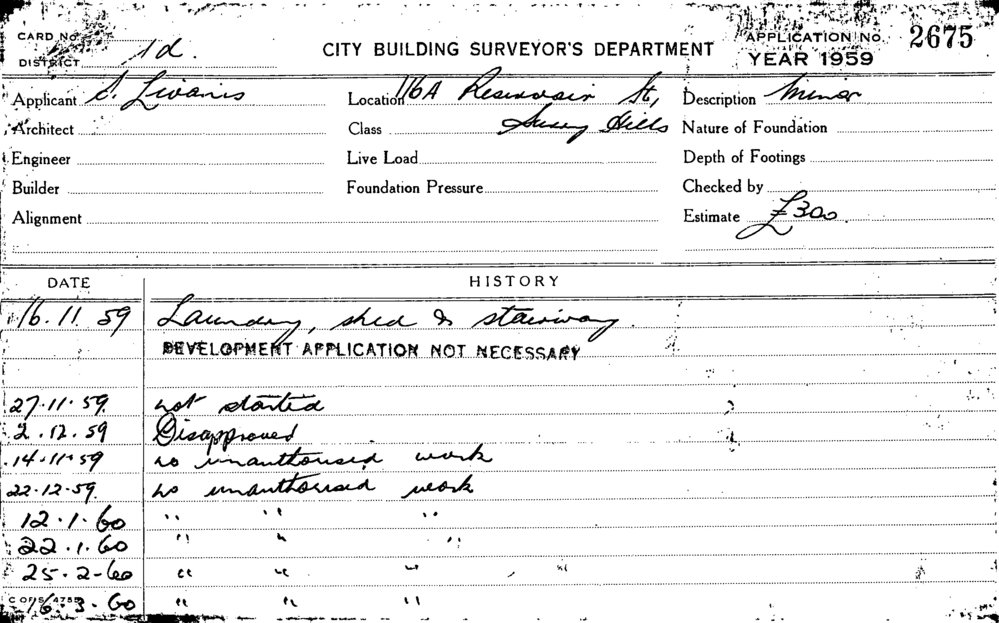 CARD No.
DISTRICT 1d.
CITY BUILDING SURVEYOR'S DEPARTMENT
APPLICATION No. 2675
YEAR 1959
Applicant S. Livanis Location 116A Reservoir St, Description Minor
Architect Class Surry Hills Nature of Foundation
Engineer Live Load Depth of Footings
Builder Foundation Pressure Checked by
Alignment Estimate £300
DATE HISTORY
16.11.59 Laundry, shed & stairway
DEVELOPMENT APPLICATION NOT NECESSARY
27.11.59. not started
2.12.59 Disapproved
14.11.59 no unauthorised work
22.12.59. no unauthorised work
12.1.60 " " "
22.1.60 " " "
25.2.60 " " "
16.3.60 " " "